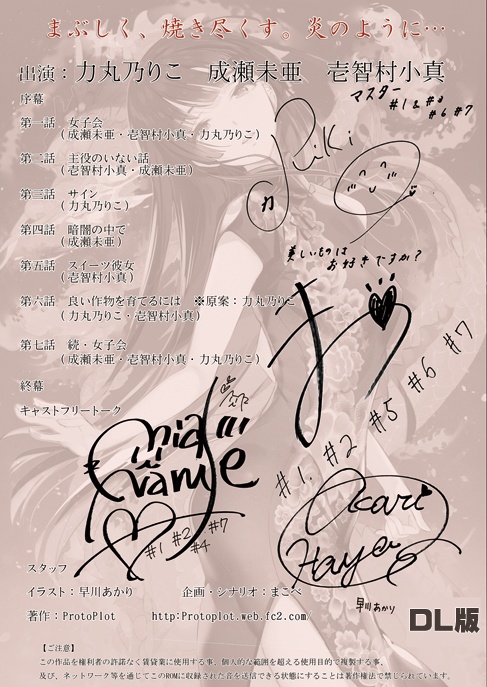 まぶしく、焼き尽くす。炎のように…
出演：力丸乃りこ　成瀬未亜　壱智村小真
マスター
#1&#3
#6 #7
序幕
第一話　女子会
（成瀬未亜・壱智村小真・力丸乃りこ）
Riki
力
第二話　主役のいない話
（壱智村小真・成瀬未亜）
第三話　サイン
（力丸乃りこ）
第四話　暗闇の中で
（成瀬未亜）
美しいものは
お好きですか？
第五話　スイーツ彼女
（壱智村小真）
第六話　良い作物を育てるには　※原案：力丸乃りこ
（力丸乃りこ・壱智村小真）
第七話　続・女子会
（成瀬未亜・壱智村小真・力丸乃りこ）
#1. #2 #5 #6 #7
終幕
キャストフリートーク
mia
#1 #2 #7
#4
Akari
Hayakawa
早川あかり
スタッフ
イラスト：早川あかり　企画・シナリオ：まこべ
著作：ProtoPlot　http:Protoplot.web.fc2.com/
DL版
【ご注意】
この作品を権利者の許諾なく賃貸業に使用する事、個人的な範囲を超える使用目的で複製する事、
及び、ネットワーク等を通じてこのROMに収録された音を送信できる状態にすることは著作権法で禁じられています。